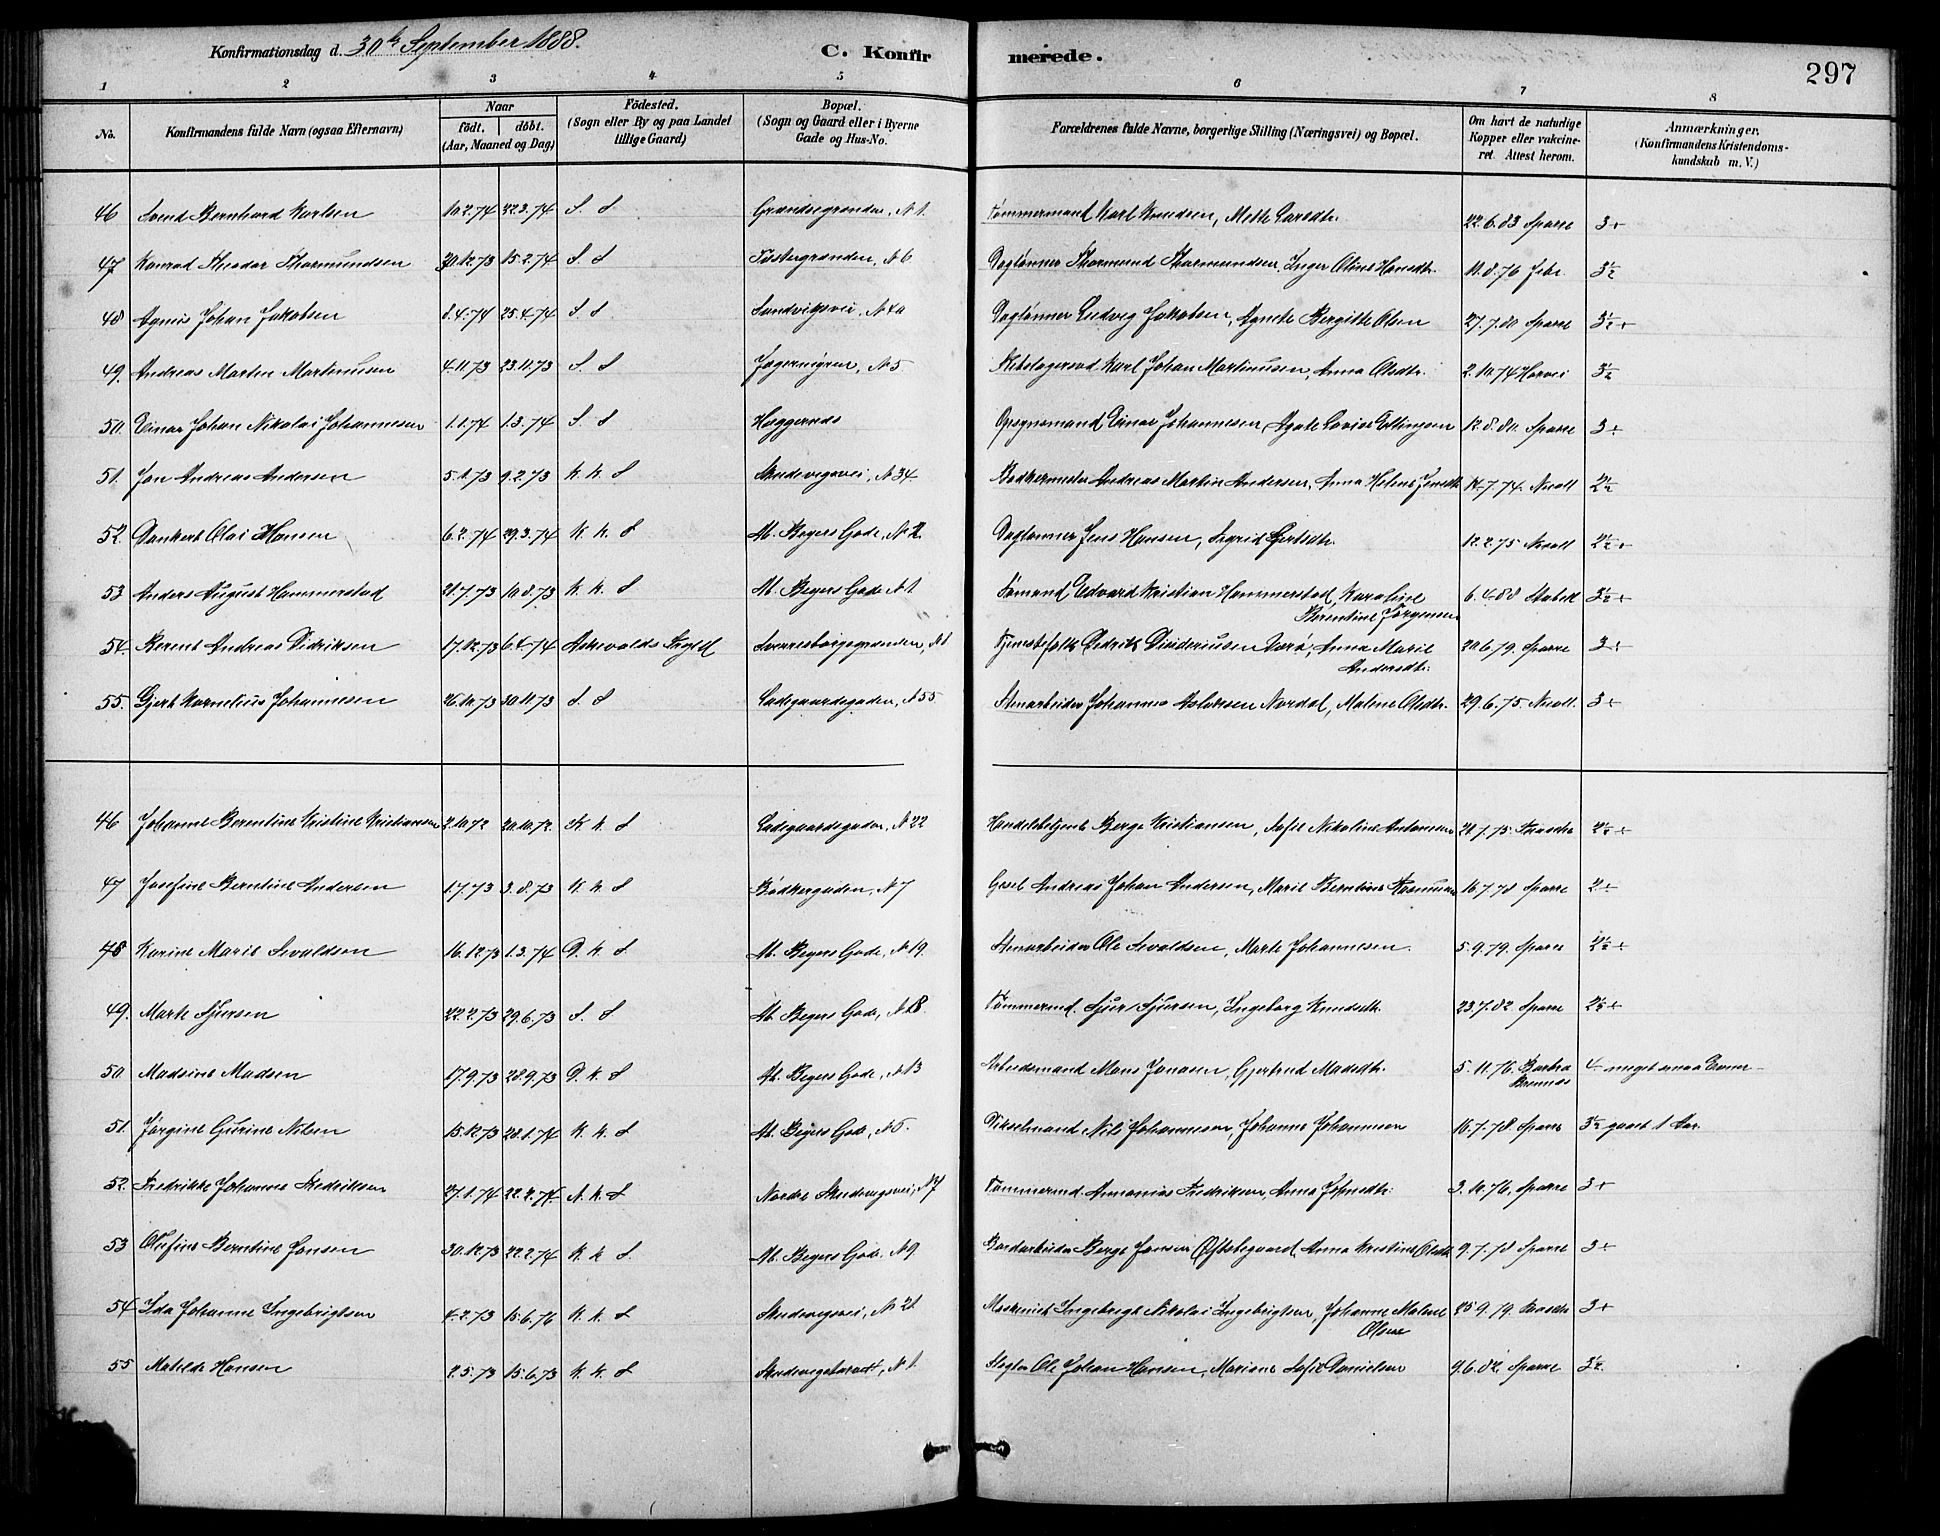 Konfirmationsdag d. 30te September 1888.
C. Konfirmerede.
297
1 2 3 4 5 6 7 8
No. Konfirmandens fulde Navn (ogsaa Efternavn) Naar födt. döbt. (Aar, Maaned og Dag) Födested. (Sogn eller By og paa Landet tillige Gaard) Bopæl. (Sogn og Gaard eller i Byerne Gade og Hus-No. Forældrenes fulde Navne, borgerlige Stilling (Næringsvei) og Bopæl. Om havt de naturlige Kopper eller vakcineret. Attest herom. Anmærkninger. (Konfirmandens Kristendomskundskab m. V.)
46 Svend Bernhard Karlsen 10.2.74 22.3.74 S. S Grændsegrænden, N 1. Tømmermand Karl Knudsen, Mette Larsdtr. 22.6.83 Sparre 3+
47 Konrad Theodor Thormundsen 30.12.73 15.2.74 S. S Tostergrænden, N 6 Daglønner Thormund Thormundsen, Inger Oline Hansdtr. 11.8.76 3½
48 Agnus Johan Jakobsen 8.4.74 25.4.74 S. S Sandviksvei, N 40 Daglønner Ludvig Jakobsen, Agnete Bergitte Olsen 27.7.80 Sparre 3½+
49. Andreas Martin Martinusen 4.11.73 23.11.73 S. S N 5 Karl Johan Martinusen, Anna Olsdtr. 2.10.74 3½
50. Einar Johan Nikolai Johannesen 1.1.74 1.3.74 S. S Heggernes Opsynsmand Einar Johannesen, Agate Lovise Ellingsen 12.8.80. Sparre 3+
51. Jan Andreas Andersen 5.1.73 9.2.73 K. K. S Skudevigsvei, N 34 Bødkermester Andreas Martin Andersen, Anna Helene 14.7.74 2½
52. Dankert Olai Hansen 6.2.74 29.3.74 K. K. S Ab. Begers Gade, N 2. Daglønner Jens Hansen, Sigrid 12.2.75 2½+
53 Anders August Hammerstad 21.7.73 10.8.73 K. K. S Ab. Begers Gade N 1 Sømand Edvard Kristian Hammerstad, Karoline Berentine Jørgensen 6.4.88 3½+
54. Berent Andreas Didriksen 17.12.73 6.4.74 Askevolds Sverresborgsgrænden, N 1 Didrik Anna Marie Andersdtr. 20.6.79. Sparre 3+
55. Gjert Kornelius Johannesen 26.10.73 30.11.73 S. S Ladegaardsgaden, N 55 Stenarbeider Johannes Aslaksen Nordal, Malene Olsdtr. 29.6.75. 3+
46 Johanne Berentine Kristine Kristiansen 2.10.72 20.10.72. K. K. S Ladegaardsgaden, N 22 Handelsbetjent Berge Kristiansen, Sofie Nikoline Antonsen 21.7.75. 2½+
47 Josefine Berntine Andersen 1.7.73 3.8.73 K. K. S Bødkergaden, N 7 Andreas Johan Andersen, Marie Berntine Rasmusen 16.7.78 Sparre 2+
48 Karine Marie Sivaldsen 16.12.73 1.3.74 D. K. S. Ab. Begers Gade, N 19. Stenarbeider Ole Sivaldsen, Marte Johannesen. 5.9.79. Sparre 2½+
49. Marte Sjursen 22.2.73 29.6.73 S. S Ab. Begers Gade, N 18. Tømmermd. Sjur Sjursen, Ingeborg Knudsdtr. 23.7.82 Sparre 2½+
50 Madsine Madsen 17.9.73 28.9.73 D. K. S Ab. Begers Gade, N 13 Arbeidsmand Mons Jonasen, Gjertrud Madsdtr. 5.11.76. Barbra 4 meget smaa Evner
51. Jørgine Gurine Nilsen 15.12.73 28.1.74 K. K. S Ab. Begers Gade, N 5. Nils Johannesen, Johanne Johannesen 16.7.78 Sparre 3½ gaaet 1 Aar.
52. Fredrikke Johanne Fredriksen 27.1.74 22.2.74. N. K. S Nordre Skudevigsvei, N 7 Tømmermd. Annanias Fredriksen, Anna Johnsdtr. 3.10.76. Sparre 3+
53 Olufine Berntine Jansen 30.12.73 22.2.74 K. K S. Ab. Begers Gade. N 9 Berge Jansen Anna Kristine Olsdtr. 9.7.78 Sparre 3+
54 Ida Johanne Ingebrigtsen 4.2.73 15.6.76 K. K. S Skudevigsvei, N 21 Maskinist Ingebrigt Nikolai Ingebrigtsen, Johanne Malene Olsen 25.9.79. 3+
55 Matilde Hansen 2.5.73 15.6.73 K. K. S N 1. Slagter Ole Johan Hansen, Mariane Sofie Danielsen 9.6.82 Sparre 3½.